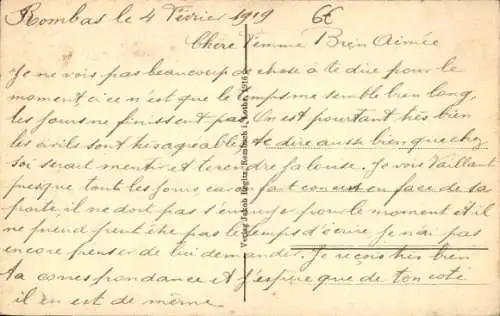 Rombas le 4 Février 1919
6€
Chère Femme Bien Aimée
Je ne vois pas beaucoup de chose à te dire pour le
moment, ici ce n'est que le temps me semble bien long,
les jours ne finissent pas. On est pourtant très bien
les civils sont très agréables te dire aussi bien que chez
soi serait mentir et te rendre jalouse. Je vois Vaillant
presque tout les jours car on fait en face de sa
porte il ne doit pas s'ennuyer pour le moment et il
ne prend peut être pas le temps d'écrire je n'ai pas
encore penser de lui demander. Je reçois très bien
ta correspondance et j'espère que de ton coté
il en est de même.
Verlag Jakob Regitz, Rombach i. Lothr. 1916